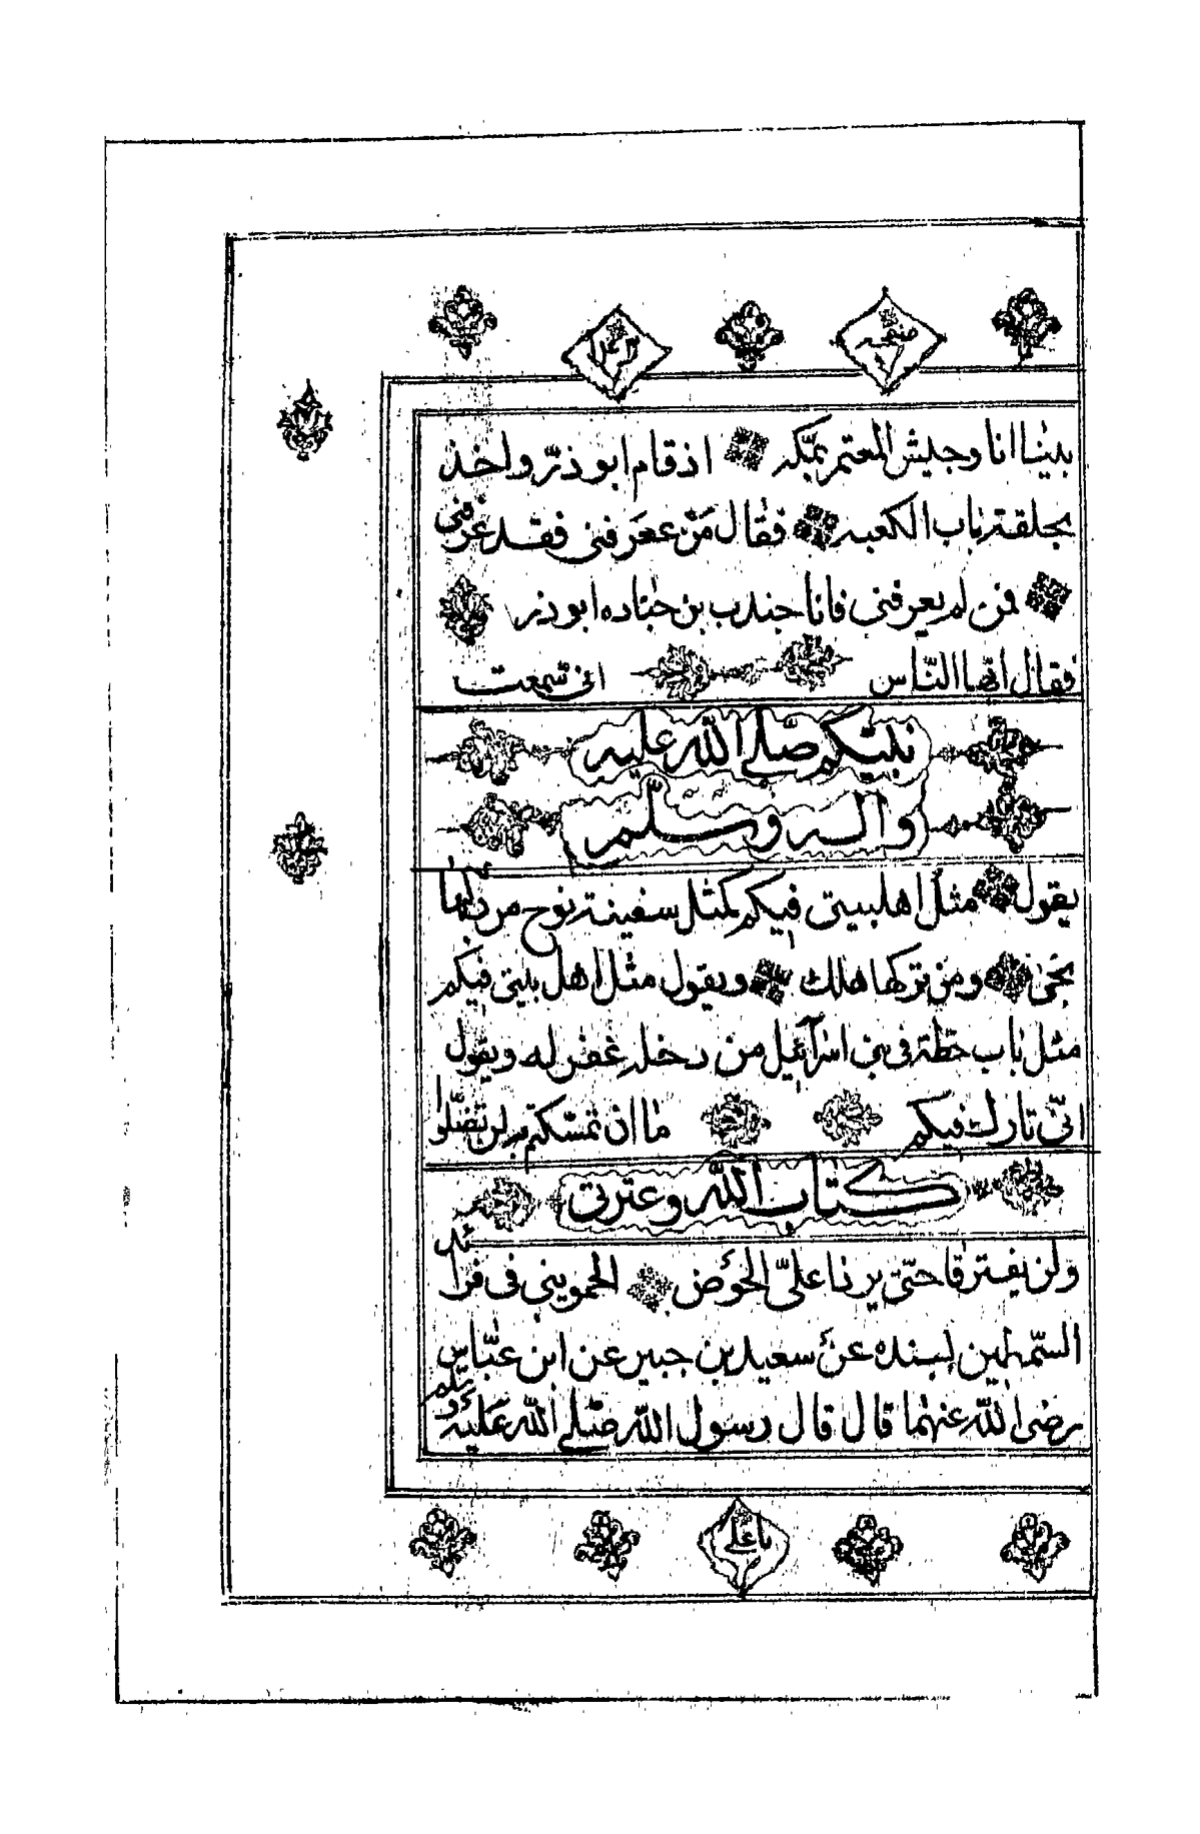 بینا انا وجلیش المعتمر بمکه اذ قام ابو ذر واخذ
بحلقة باب الکعبه فقال مَن عرفنی فقد عرفنی
فمن لم یعرفنی فانا جندب بن جناده ابو ذر
فقال ایّها النّاس انی سَمعت
نبیّکم صَلّی اللّٰه علیه
واله وسلّم
یقول مثل اهلبیتی فیکم کمثل سفینة نوح من رکبها
نجی ومن ترکها هلك ویقول مثل اهل بیتی فیکم
مثل باب حطّة فی بنی اسرآئیل من دخله غفر له ویقول
انّی تارك فیکم ما ان تمسّکتم به لن تضلّوا
کتاب اللّٰه وعترتی
ولن یفترقا حتّی یردا علیّ الحوَض الحموینی فی فرائد
السّمطین بسنده عَن سعید بن جبیر عن ابن عبّاس
رضی اللّٰه عنهما قال قال رسول اللّٰه صَلّی اللّٰه عَلیه وسَلّم
یا علی